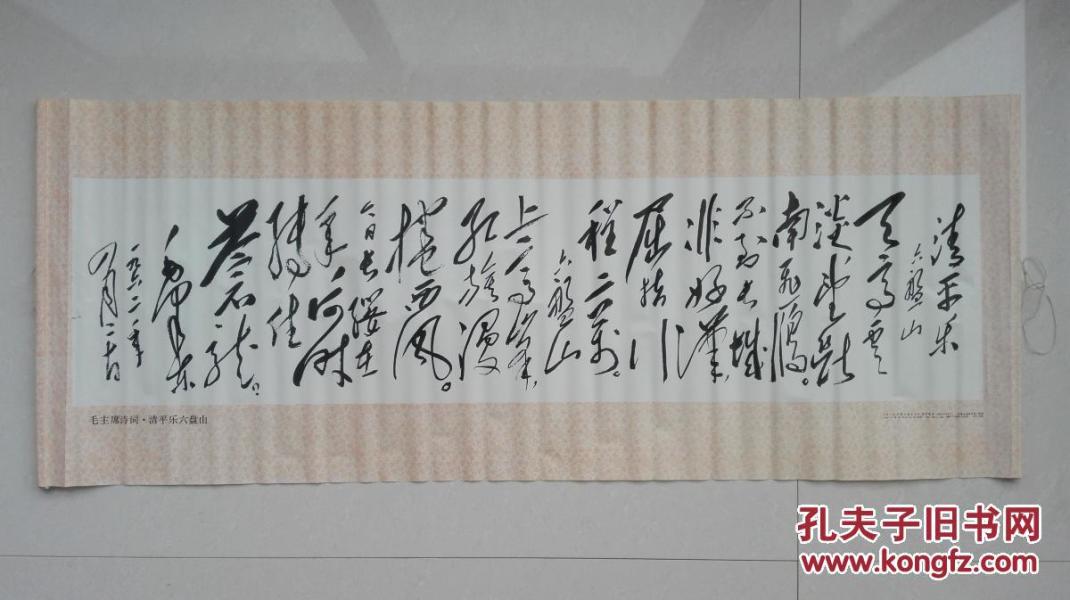 清平乐
六盤山
天高雲
淡望断
南飛雁。
不到长城
非好漢,
屈指行
程二万。
六盤山
上高峰,
红旗漫
捲西风。
今日长缨在
手,何时
缚住
苍龙?
毛泽东
一九六二年
四月二十日
毛主席诗词·清平乐六盘山
孔夫子旧书网
www.kongfz.com